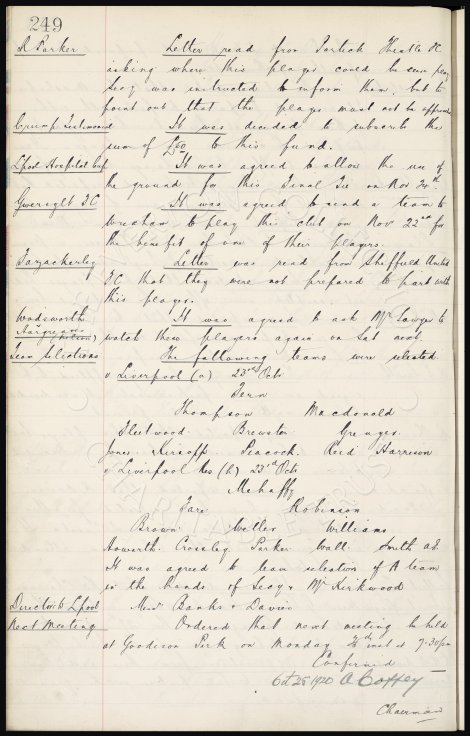 249
R Parker Letter read from Partick Thistle FC
asking where this player could be seen play
Secy was instructed to inform them, but to
point out that the player must not be approached
Crump Testimonial It was decided to subscribe the
sum of £50 to this fund.
Lpool Hospital Cup It was agreed to allow the use of
the ground for this Final Tie on Nov 24th.
Gwersyllt FC It was agreed to send a team to
Wrexham to play this club on Nov 22nd for
the benefit of one of their players.
Fazackerley Letter was read from Sheffield United
FC that they were not prepared to part with
this player.
Wadsworth It was agreed to ask Mr Sawyer to
Hargreaves (Nelson) watch these players again on Sat next
Team Selections The following teams were selected
v Liverpool (a) 23rd Oct
Fern
Thompson Macdonald
Fleetwood Brewster Grenyer
Jones Kirsopp Peacock Reid Harrison
v Liverpool Res (h) 23rd Oct
Mehaffy
Fare Robinson
Brown Weller Williams
Howarth Crossley Parker Wall Smith
It was agreed to leave selection of A team
in the hands of Secy & Mr Kirkwood
Directors Lpool Messrs Banks & Davies
Next Meeting Ordered that next meeting be held
at Goodison Park on Monday inst at 7-30pm
Confirmed
Oct 25 1920 A Coffey
Chairman